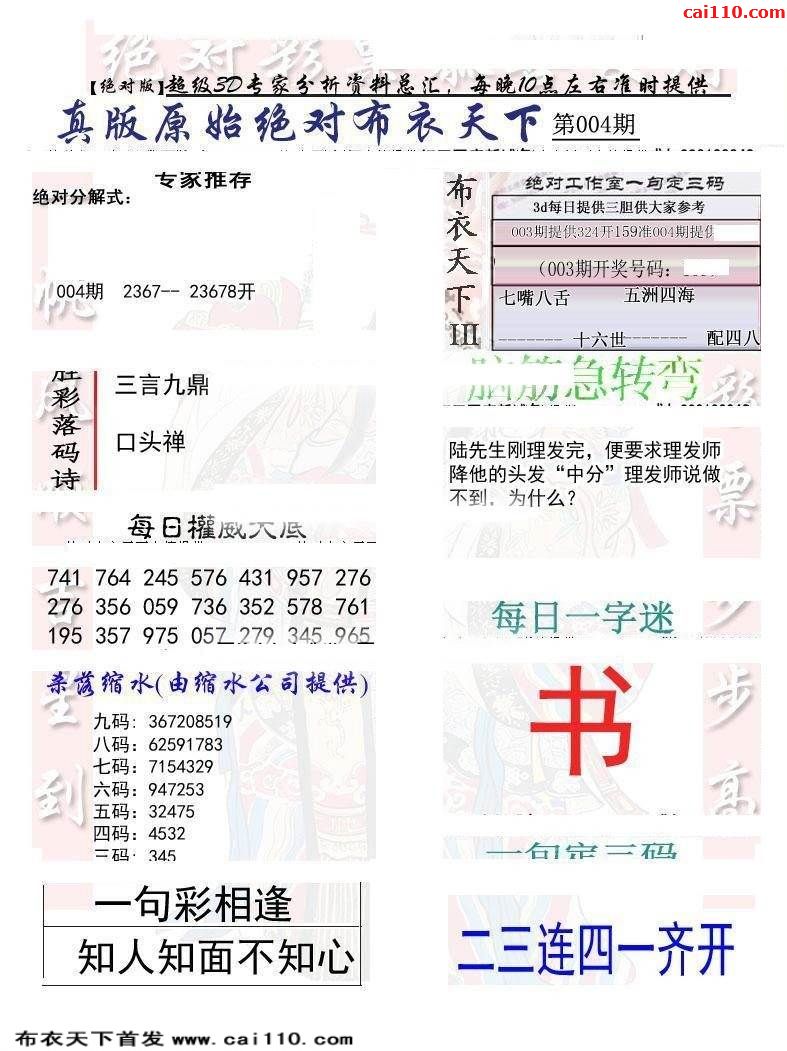 cai110.com
【绝对版】超级3D专家分析资料总汇，每晚10点左右准时提供
真版原始绝对布衣天下 第004期
专家推荐
绝对分解式：
004期 2367-- 23678开
布衣天下III
绝对工作室一句定三码
3d每日提供三胆供大家参考
003期提供324开159准004期提供
（003期开奖号码：
七嘴八舌 五洲四海
------- 十六世------- 配四八
彩落码诗
三言九鼎
口头禅
脑筋急转弯
陆先生刚理发完，便要求理发师
降他的头发“中分”理发师说做
不到，为什么？
每日权威大底
741 764 245 576 431 957 276
276 356 059 736 352 578 761
195 357 975 057 279 345 965
每日一字迷
书
杀落缩水(由缩水公司提供)
九码：367208519
八码：62591783
七码：7154329
六码：947253
五码：32475
四码：4532
三码：345
一句定三码
一句彩相逢
知人知面不知心
二三连四一齐开
布衣天下首发 www.cai110.com